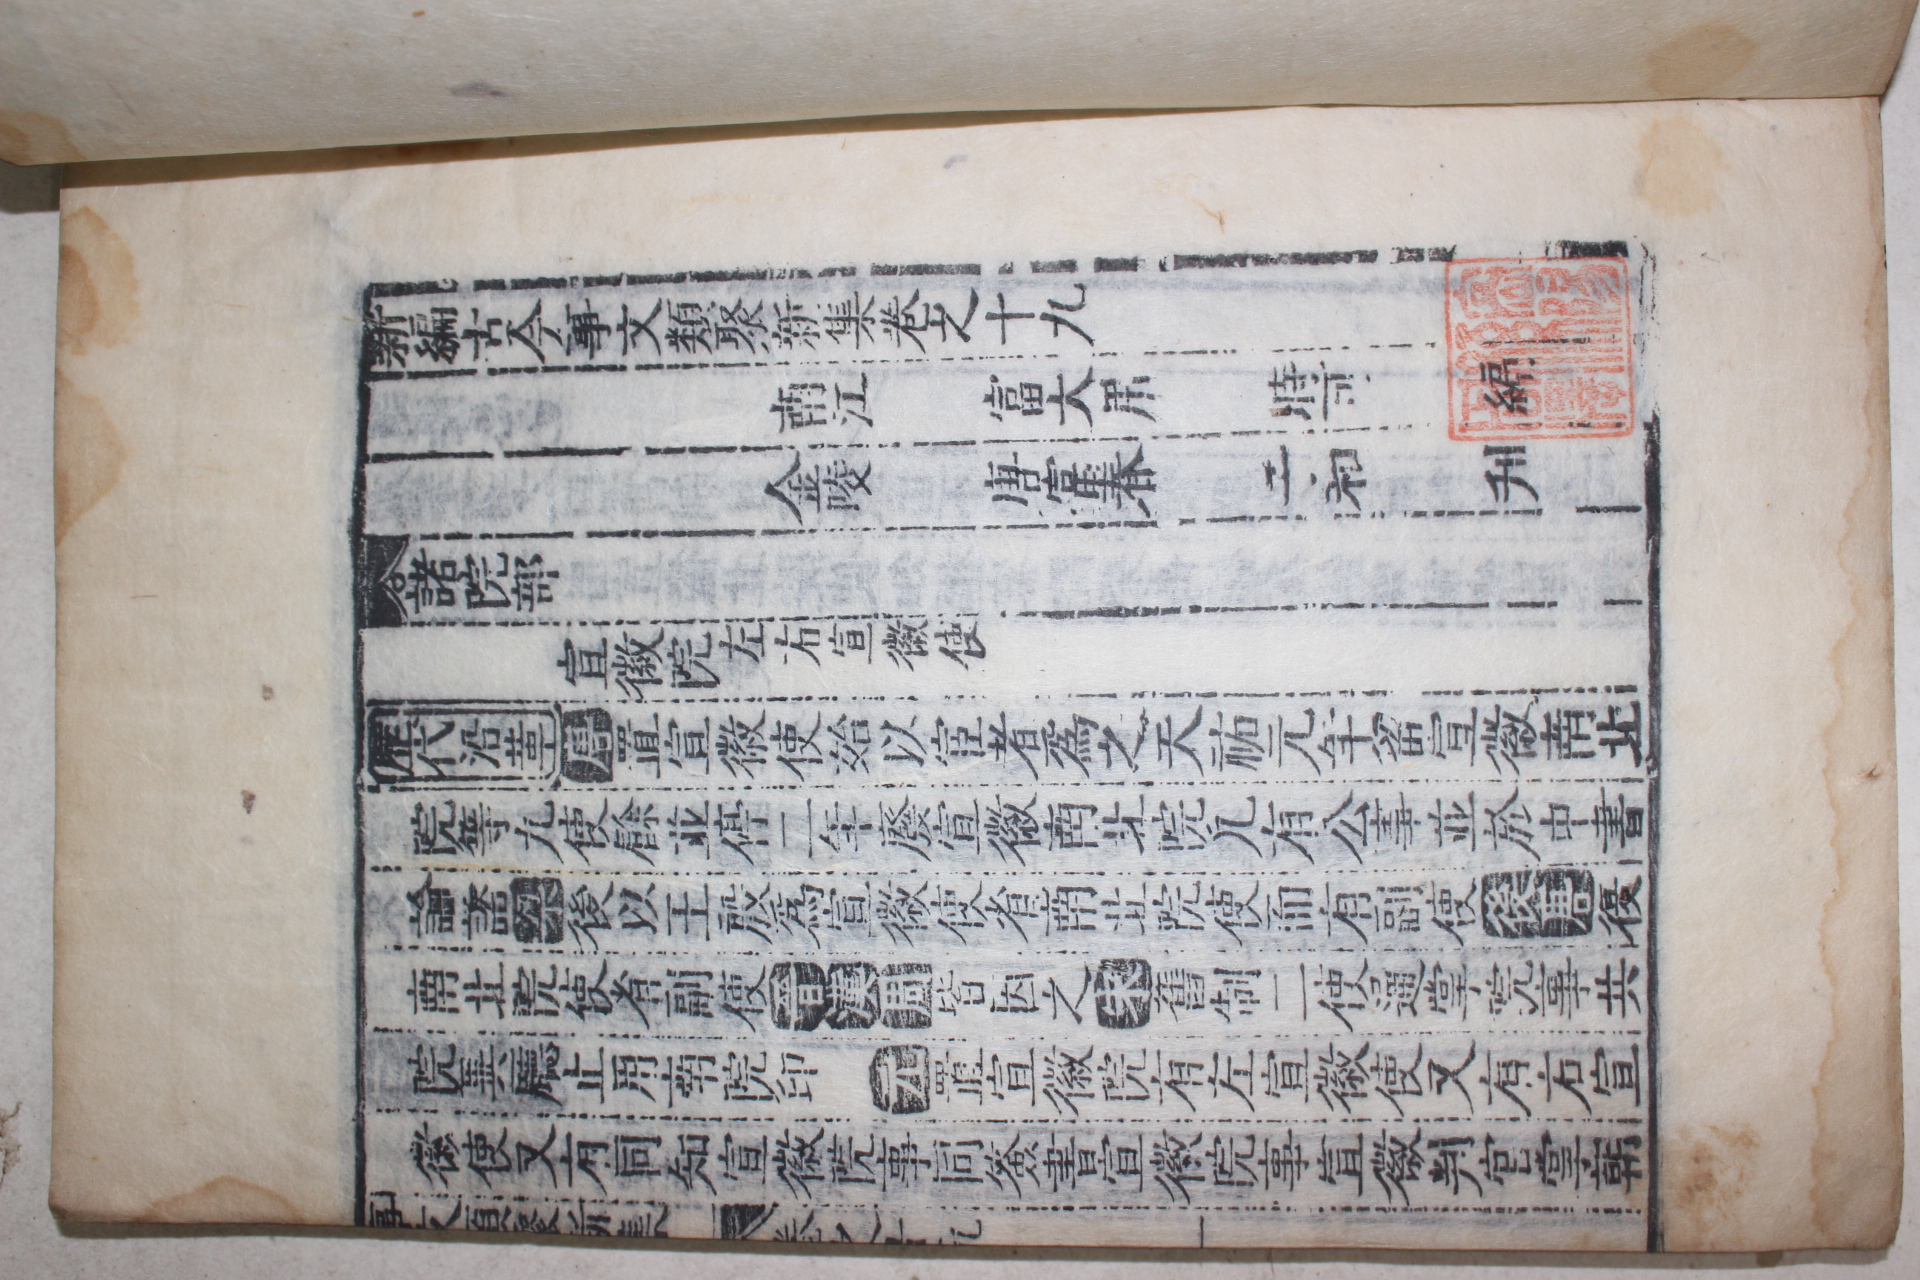 新編古今事文類聚新集卷之十九
南江 富大用 時可 編
金陵 唐富春 子和 刊
諸院部
宣徽院 左右宣徽使
歷代沿革 唐置宣徽使始以宦者爲之天祐元年留宣徽南北
院等九使餘並停二年廢宣徽南北院凡有公事並於中書
論諮梁後以王殷爲宣徽使省南北院使而有副使後唐復
南北院使者副使晉漢周皆因之宋舊制二使通掌院事共
院異廳止用南院印 元置宣徽院有左宣徽使又有右宣
徽使又有同知宣徽院事同簽書宣徽院事宣徽判官掌朝
事文類聚新集 卷之十九 一